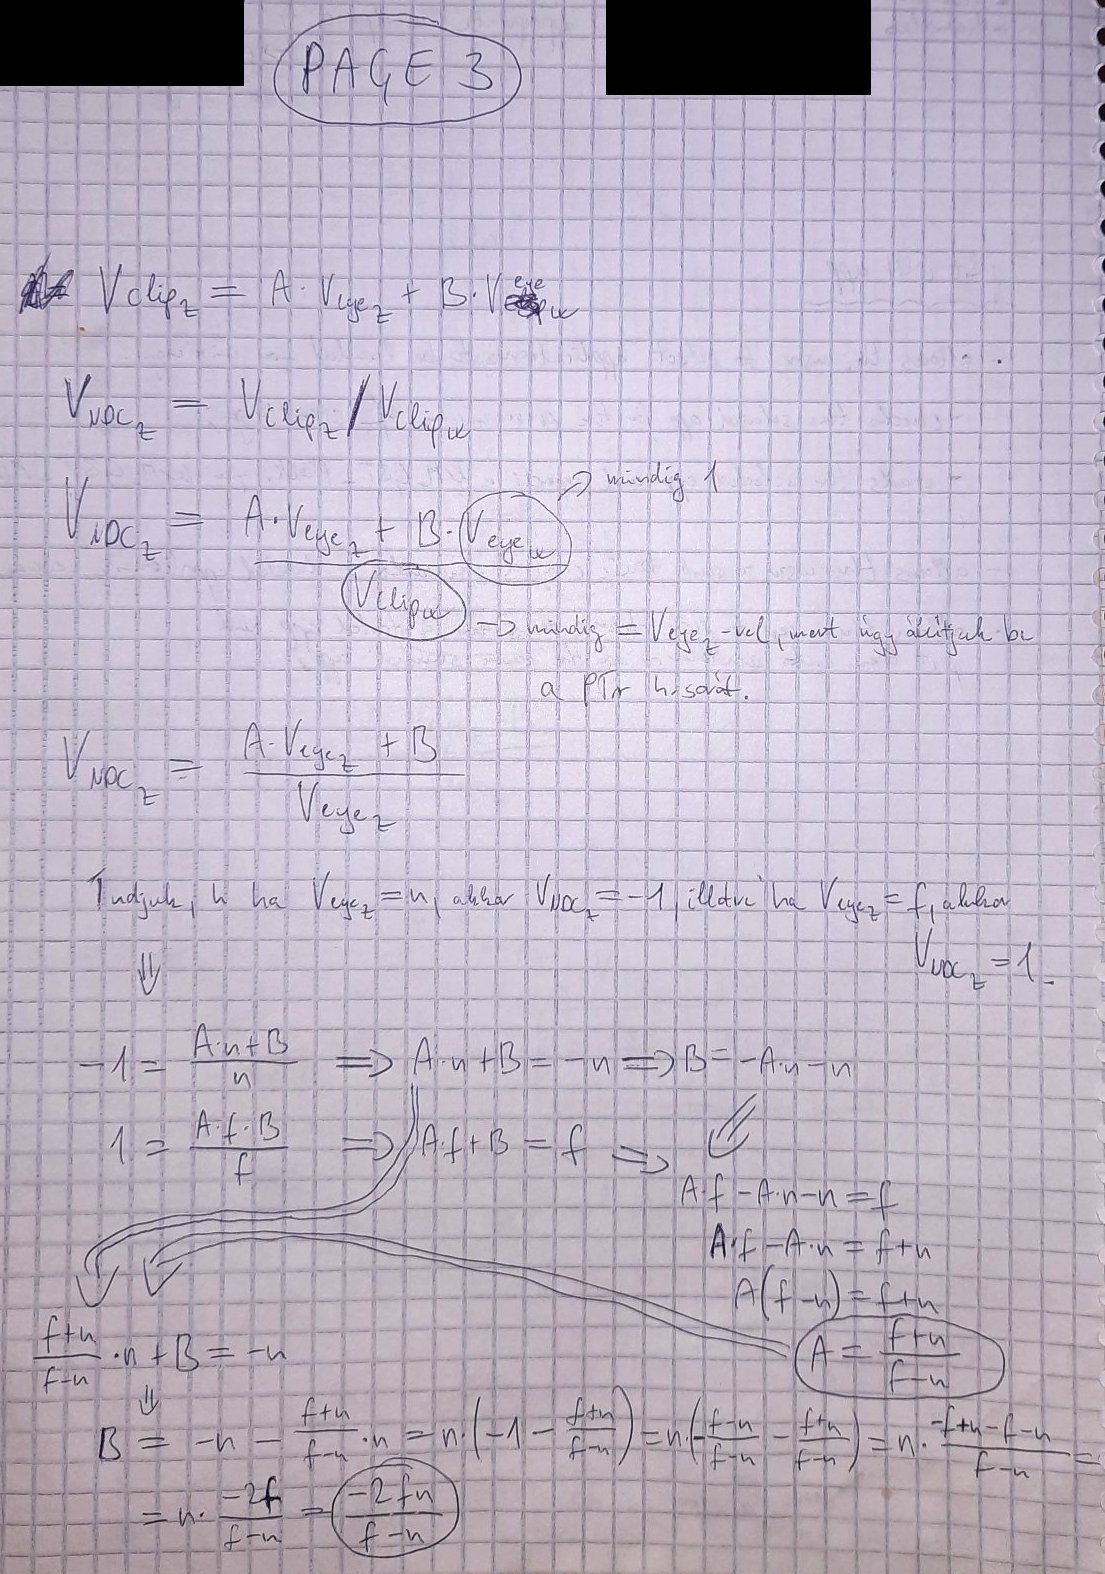 PAGE 3
Vclip_z = A · Veye_z + B · Veye_w
V_NDC_z = Vclip_z / Vclip_w
V_NDC_z = (A · Veye_z + B · Veye_w) / Vclip_w
→ mindig 1
→ mindig = Veye_z-vel, mert úgy állítjuk be
a PTr 4. sorát.
V_NDC_z = (A · Veye_z + B) / Veye_z
Tudjuk, h ha Veye_z = n, akkor V_NDC_z = -1, illetve ha Veye_z = f, akkor
V_NDC_z = 1.
⇓
-1 = (A·n+B)/n ⇒ A·n+B = -n ⇒ B = -A·n-n
1 = (A·f·B)/f ⇒ A·f+B = f ⇒
A·f-A·n-n = f
A·f-A·n = f+n
A(f-n) = f+n
A = (f+n)/(f-n)
(f+n)/(f-n) · n + B = -n
⇓
B = -n - (f+n)/(f-n) · n = n · (-1 - (f+n)/(f-n)) = n · (-(f-n)/(f-n) - (f+n)/(f-n)) = n · (-f+n-f-n)/(f-n) =
= n · (-2f)/(f-n) = (-2fn)/(f-n)